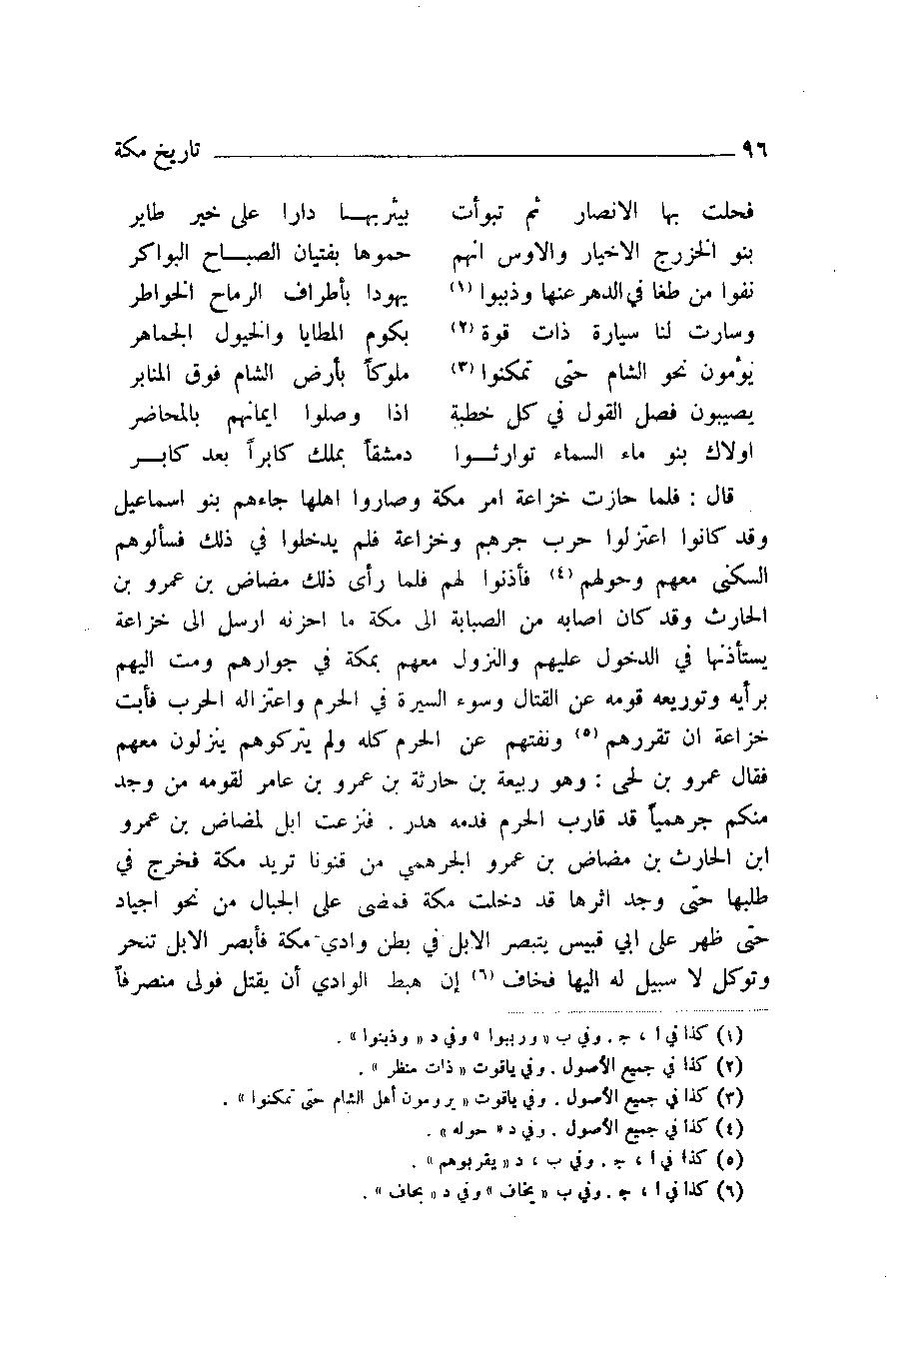 ٩٦ تاريخ مكة
فحلت بها الانصار ثم تبوأت بيثربهــا دارا على خير طاير
بنو الخزرج الاخيار والاوس انهم حموها بفتيان الصبــاح البواكر
نفوا من طغا في الدهر عنها وذببوا (١) يهودا بأطراف الرماح الخواطر
وسارت لنا سيارة ذات قوة (٢) بكوم المطايا والخيول الجماهر
يؤمون نحو الشام حتى تمكنوا (٣) ملوكاً بأرض الشام فوق المنابر
يصيبون فصل القول في كل خطبة اذا وصلوا ايمانهم بالمحاضر
اولاك بنو ماء السماء توارثــوا دمشقاً بملك كابراً بعد كابــر
قال : فلما حازت خزاعة امر مكة وصاروا اهلها جاءهم بنو اسماعيل
وقد كانوا اعتزلوا حرب جرهم وخزاعة فلم يدخلوا في ذلك فسألوهم
السكنى معهم وحولهم (٤) فأذنوا لهم فلما رأى ذلك مضاض بن عمرو بن
الحارث وقد كان اصابه من الصبابة الى مكة ما احزنه ارسل الى خزاعة
يستأذنها في الدخول عليهم والنزول معهم بمكة في جوارهم ومت اليهم
برأيه وتوريعه قومه عن القتال وسوء السيرة في الحرم واعتزاله الحرب فأبت
خزاعة ان تقررهم (٥) ونفتهم عن الحرم كله ولم يتركوهم ينزلون معهم
فقال عمرو بن لحى : وهو ربيعة بن حارثة بن عمرو بن عامر لقومه من وجد
منكم جرهمياً قد قارب الحرم فدمه هدر . فنزعت ابل لمضاض بن عمرو
ابن الحارث بن مضاض بن عمرو الجرهمي من قنونا تريد مكة فخرج في
طلبها حتى وجد اثرها قد دخلت مكة فمضى على الجبال من نحو اجياد
حتى ظهر على ابي قبيس يتبصر الابل في بطن وادي مكة فأبصر الابل تنحر
وتوكل لا سبيل له اليها فخاف (٦) إن هبط الوادي أن يقتل فولى منصرفاً
(١) كذا في أ ، جـ . وفي ب « ورببوا » وفي د « وذبنوا » .
(٢) كذا في جميع الأصول . وفي ياقوت « ذات منظر » .
(٣) كذا في جميع الأصول . وفي ياقوت « يرومون أهل الشام حتى تمكنوا » .
(٤) كذا في جميع الأصول . وفي د « حوله » .
(٥) كذا في أ ، جـ . وفي ب ، د « يقربوهم » .
(٦) كذا في أ ، جـ . وفي ب « يخاف » وفي د « بحاف » .